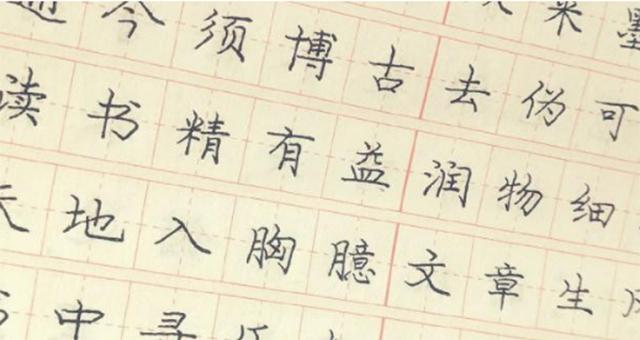 今须博古去伪可
读书精有益润物细
地入胸臆文章生
中寻